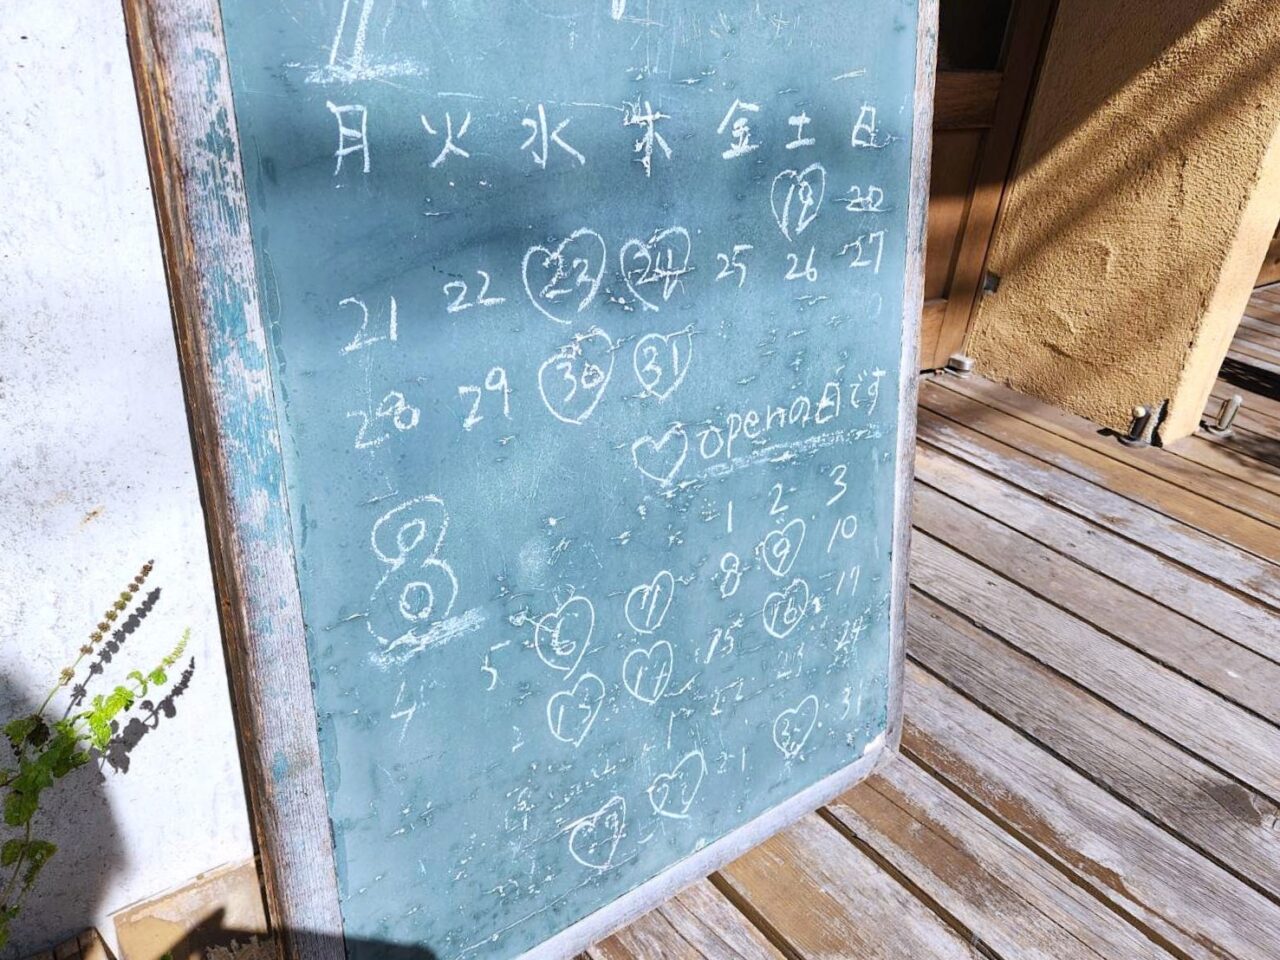 7
月 火 水 木 金 土 日
19 20
21 22 23 24 25 26 27
28 29 30 31
♡openの日です
8
1 2 3
4 5 6 7 8 9 10
13 14 15 16 17
23 24
27 30 31